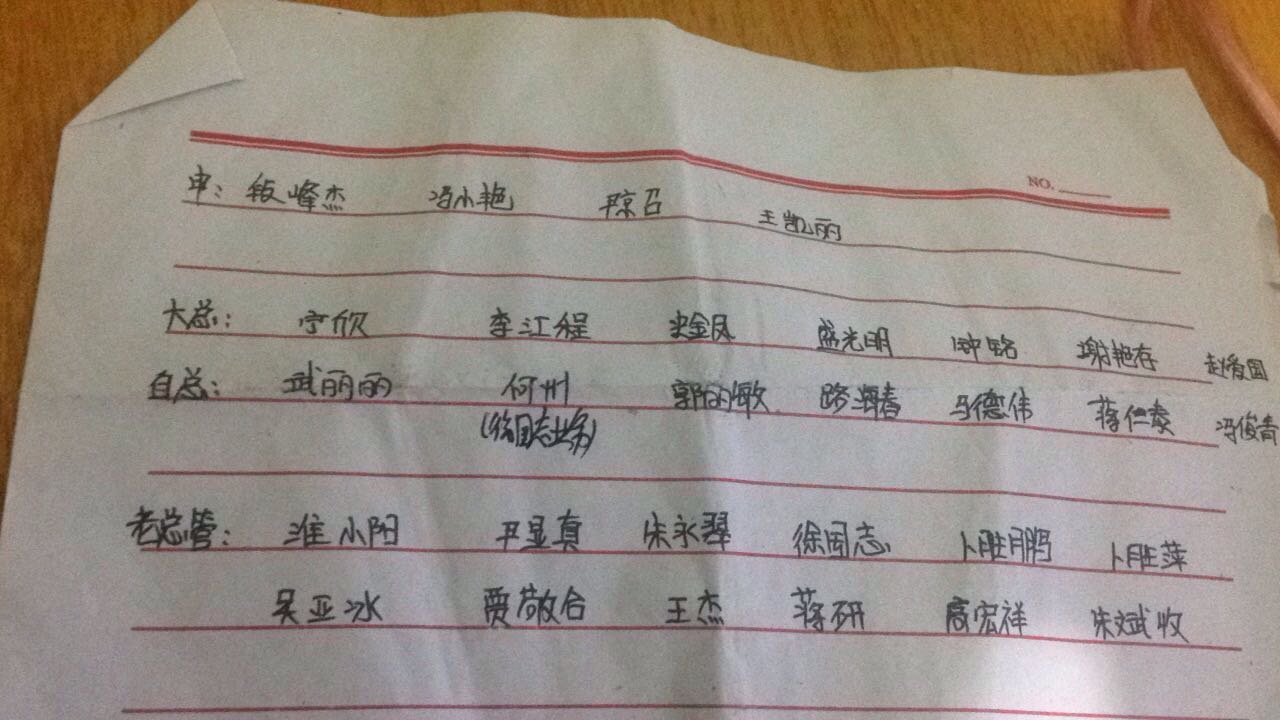 NO.
申: 峰杰 冯小艳 王凯丽
大总: 宁欣 李江程 史金凤 盛光明 钟铭 谢艳存 赵爱国
自总: 武丽丽 何州 郭的敏 路海春 马德伟 蒋仁 冯俊青
(徐国志业务)
老总管: 淮小阳 尹显真 朱永翠 徐国志 卜胜鹏 卜胜萍
吴亚冰 贾敬合 王杰 蒋研 高宏祥 朱斌收